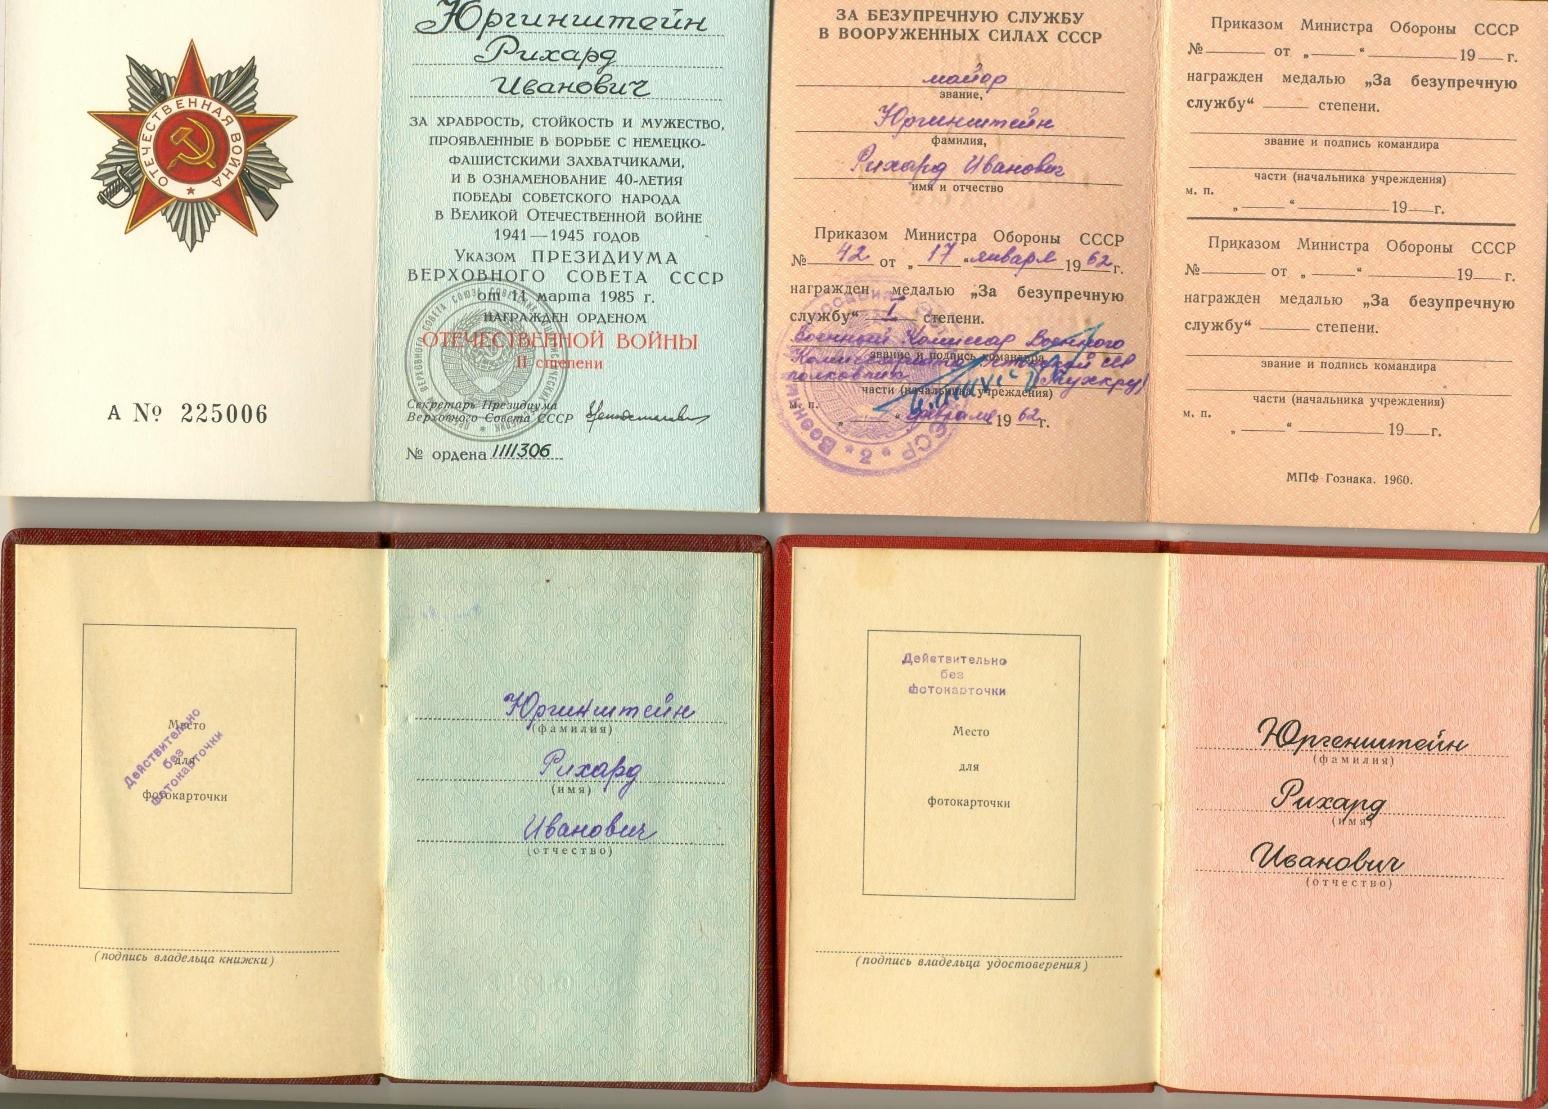 ОТЕЧЕСТВЕННАЯ ВОЙНА
А № 225006
Юргинштейн
Рихард
Иванович
ЗА ХРАБРОСТЬ, СТОЙКОСТЬ И МУЖЕСТВО,
ПРОЯВЛЕННЫЕ В БОРЬБЕ С НЕМЕЦКО-
ФАШИСТСКИМИ ЗАХВАТЧИКАМИ,
И В ОЗНАМЕНОВАНИЕ 40-ЛЕТИЯ
ПОБЕДЫ СОВЕТСКОГО НАРОДА
В ВЕЛИКОЙ ОТЕЧЕСТВЕННОЙ ВОЙНЕ
1941—1945 ГОДОВ
УКАЗОМ ПРЕЗИДИУМА
ВЕРХОВНОГО СОВЕТА СССР
от 11 марта 1985 г.
НАГРАЖДЕН ОРДЕНОМ
ОТЕЧЕСТВЕННОЙ ВОЙНЫ
II степени
Секретарь Президиума
Верховного Совета СССР
№ ордена 1111306
ЗА БЕЗУПРЕЧНУЮ СЛУЖБУ
В ВООРУЖЕННЫХ СИЛАХ СССР
майор
звание,
Юргинштейн
фамилия,
Рихард Иванович
имя и отчество
Приказом Министра Обороны СССР
№ 42 от „ 17 “ января 1962 г.
награжден медалью „За безупречную
службу“ I степени.
Военный Комиссар Военного
звание и подпись командира
полковник (Мухкру)
части (начальника учреждения)
м. п.
„ “ февраля 1962 г.
Приказом Министра Обороны СССР
№ от „ “ 19 г.
награжден медалью „За безупречную
службу“ степени.
звание и подпись командира
части (начальника учреждения)
м. п.
„ “ 19 г.
Приказом Министра Обороны СССР
№ от „ “ 19 г.
награжден медалью „За безупречную
службу“ степени.
звание и подпись командира
части (начальника учреждения)
м. п.
„ “ 19 г.
МПФ Гознака. 1960.
Место
для
фотокарточки
Действительно
без
фотокарточки
(подпись владельца книжки)
Юргинштейн
(фамилия)
Рихард
(имя)
Иванович
(отчество)
Действительно
без
фотокарточки
Место
для
фотокарточки
(подпись владельца удостоверения)
Юргенштейн
(фамилия)
Рихард
(имя)
Иванович
(отчество)